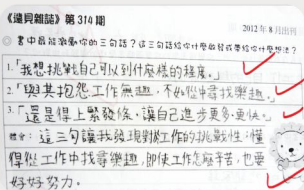 《遠見雜誌》第 314 期
2012 年 8 月出刊
書中最能激勵你的三句話？這三句話給你什麼啟發或帶給你什麼想法？
1.「我想挑戰自己可以到什麼樣的程度。」
2.「與其抱怨工作無趣，不如從中尋找樂趣。」
3.「還是得上緊發條，讓自己進步更多、更快。」
體會：這三句讓我發現對工作的挑戰性；懂
得從工作中找尋樂趣，即使工作怎麼辛苦，也要
好好努力。